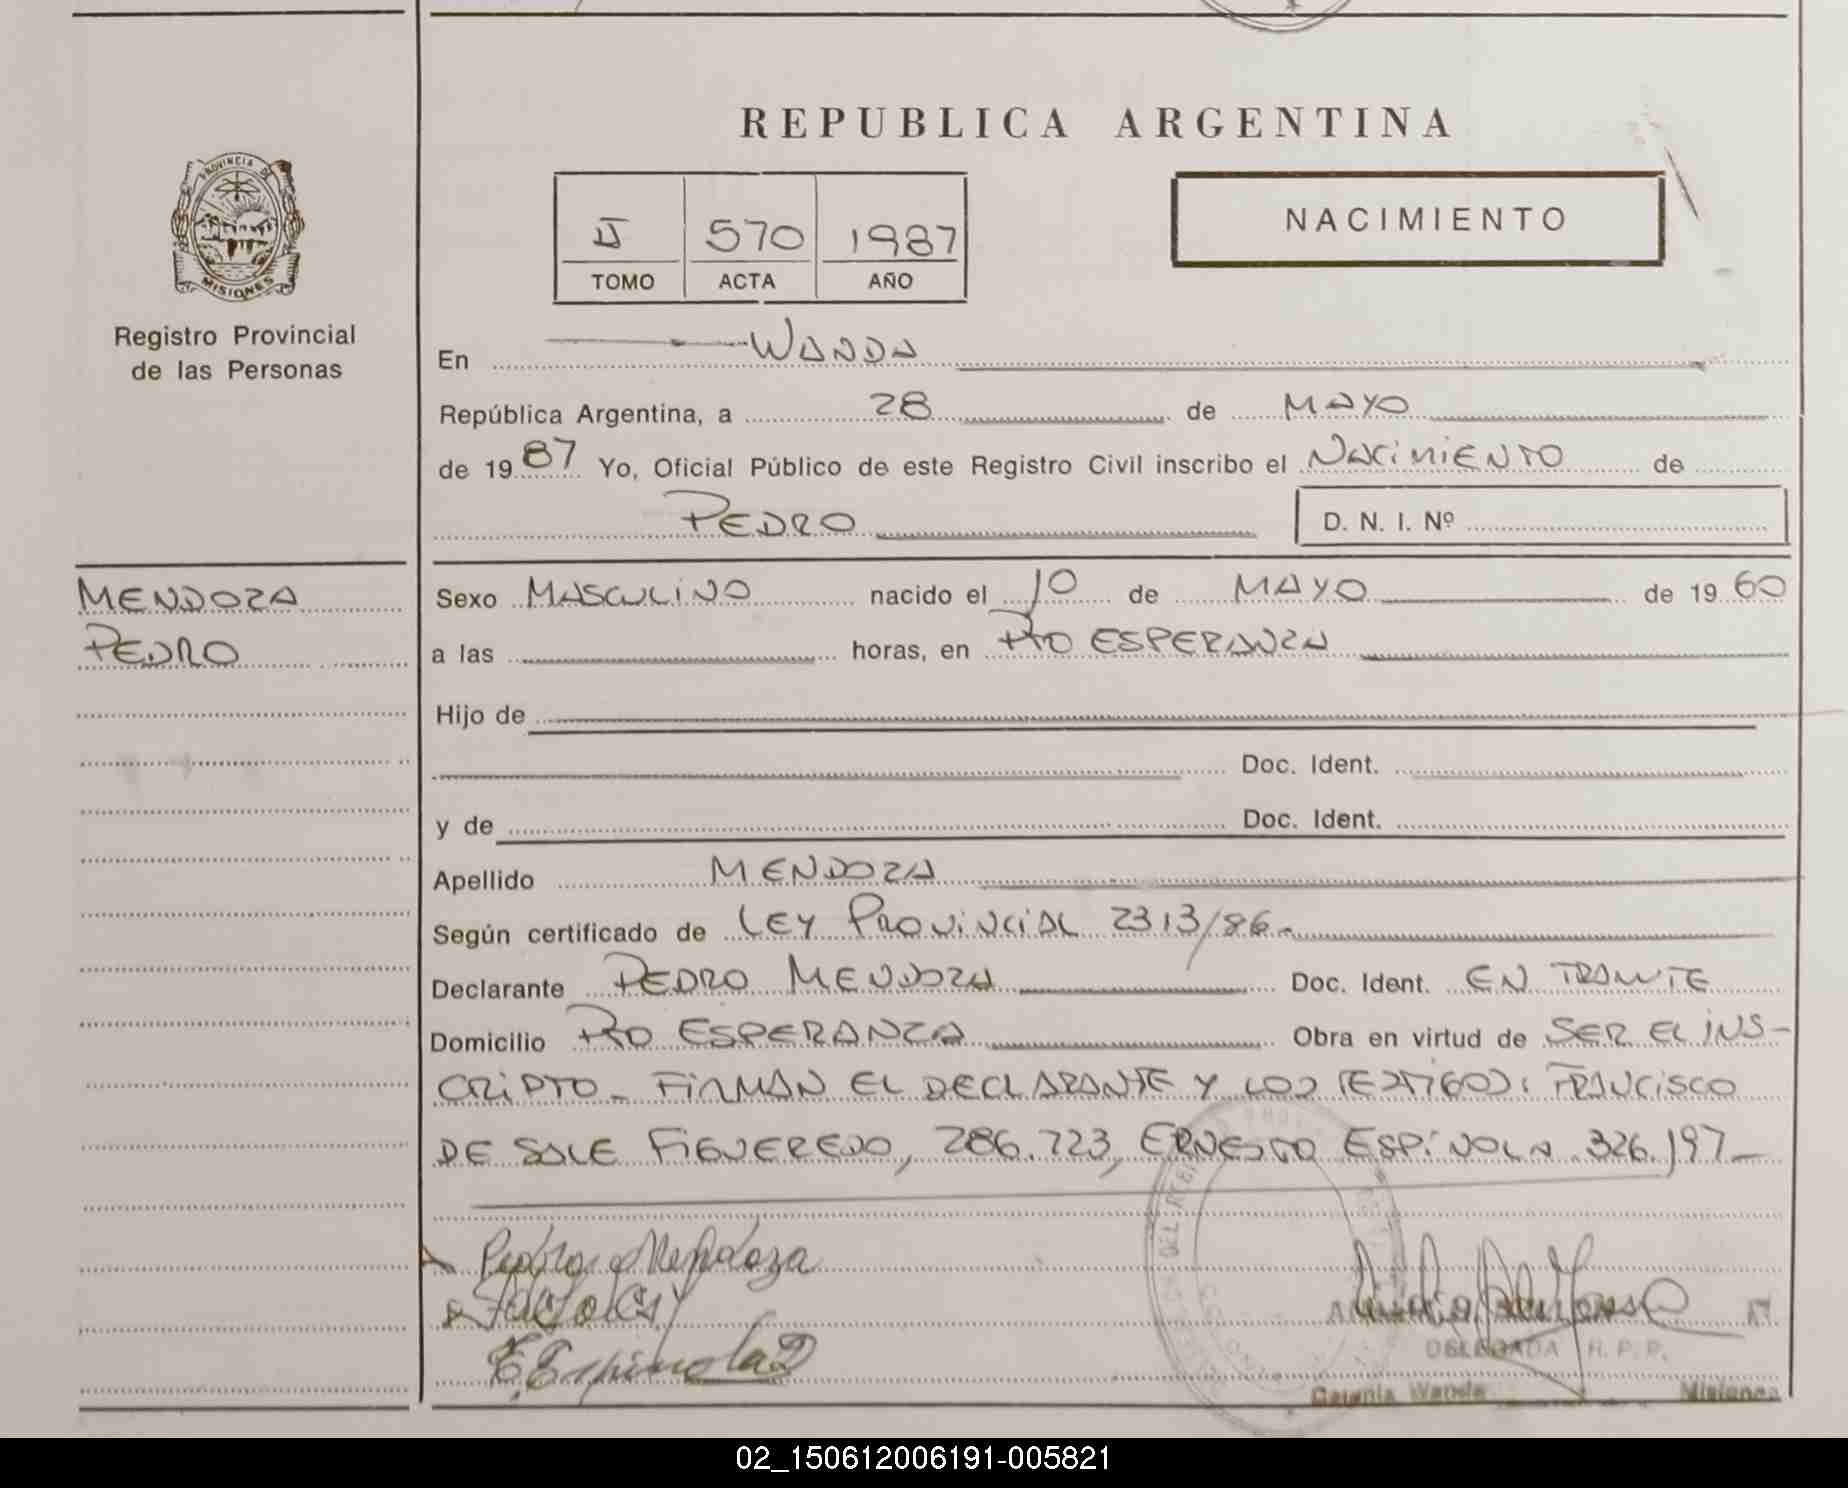 REPUBLICA ARGENTINA
PROVINCIA DE
MISIONES
Registro Provincial
de las Personas
II 570 1987
TOMO ACTA AÑO
NACIMIENTO
En WANDA
República Argentina, a 28 de MAYO
de 1987 Yo, Oficial Público de este Registro Civil inscribo el NACIMIENTO de
PEDRO D. N. I. Nº
MENDOZA
PEDRO
Sexo MASCULINO nacido el 10 de MAYO de 1960
a las horas, en PTO ESPERANZA
Hijo de
Doc. Ident.
y de Doc. Ident.
Apellido MENDOZA
Según certificado de LEY PROVINCIAL 2313/86.
Declarante PEDRO MENDOZA Doc. Ident. EN TRAMITE
Domicilio PTO ESPERANZA Obra en virtud de SER EL INS-
CRIPTO_ FIRMAN EL DECLARANTE Y LOS TESTIGOS: FRANCISCO
DE SALE FIGUEREDO, 286.723, ERNESTO ESPINOLA 326.197_
Pedro Mendoza
E. Espinola
DELEGADA R. P. P.
Colonia Wanda Misiones
02_150612006191-005821